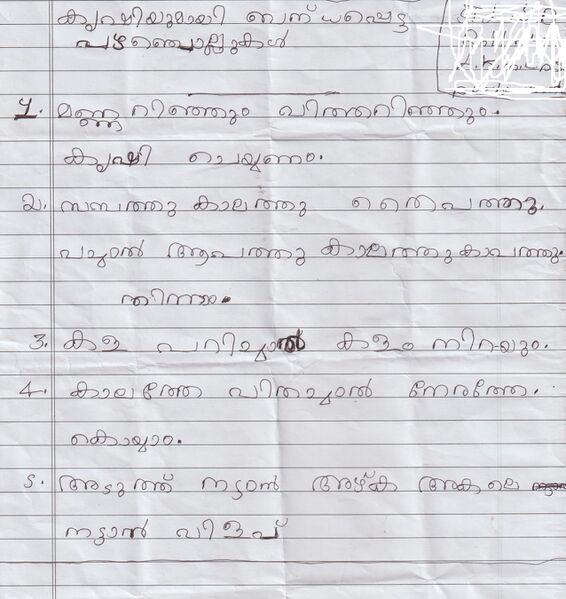 കൃഷിയുമായി ബന്ധപ്പെട്ട
പഴഞ്ചൊല്ലുകൾ
1. മണ്ണറിഞ്ഞും വിത്തറിഞ്ഞും.
കൃഷി ചെയ്യണം.
2. സമ്പത്തു കാലത്തു തൈപത്തു.
വച്ചാൽ ആപത്തു കാലത്തുകാപത്തു.
തിന്നാം.
3. കള പറിച്ചാൽ കളം നിറയും.
4. കാലത്തേ വിതച്ചാൽ നേരത്തേ.
കൊയ്യാം.
5. അടുത്ത് നട്ടാൽ അഴ്ക അകലെ
നട്ടാൽ വിളവ്